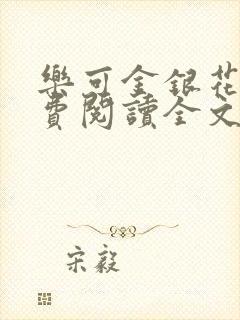 樂可金銀花
費閱讀全文
宋毅